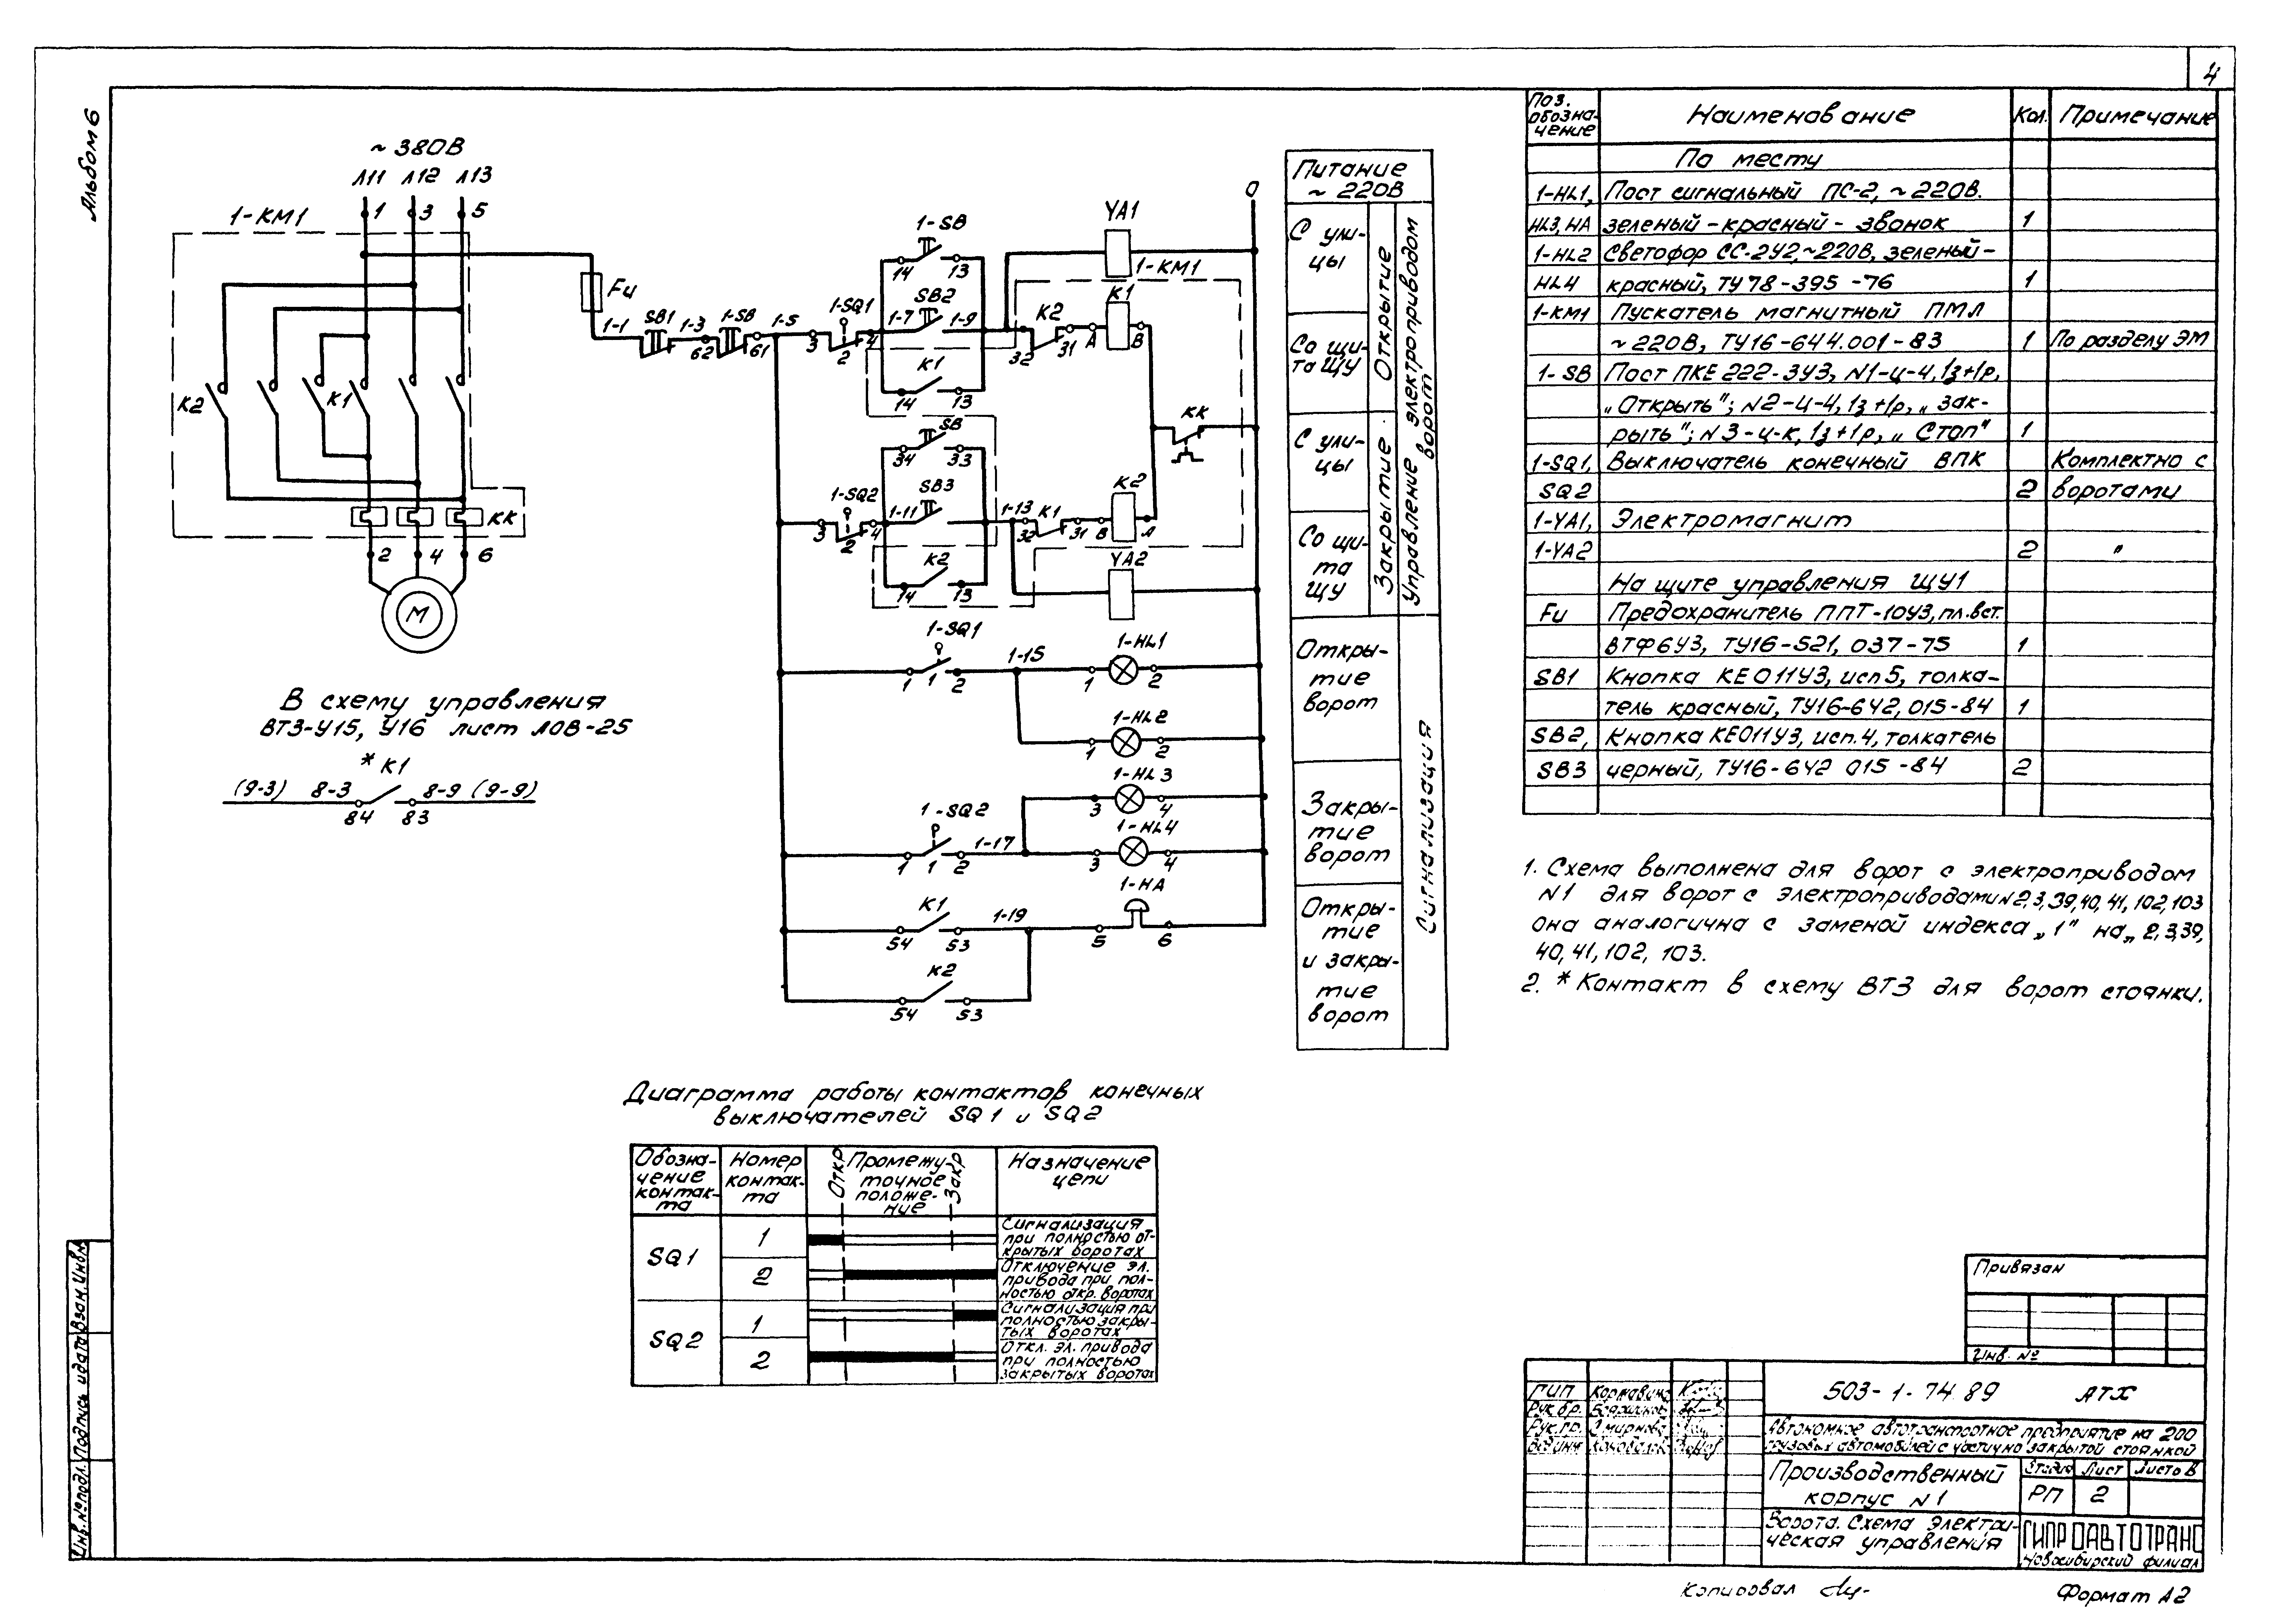 4
Альбом 6
~ 380В
Л11 Л12 Л13
1 3 5
1-КМ1
К2
К1
КК
2 4 6
М
В схему управления
ВТЗ-У15, У16 лист ЛОВ-25
* К1
(9-3) 8-3 8-9 (9-9)
84 83
Fu
1-1 SB1 1-3 1-SB 1-5
62 61
1-SQ1
3 2 4
1-SB
14 13
1-7 SB2 1-9
К1
14 13
YA1
1-КМ1
К2
32 31
К1
А В
0
КК
SB
34 33
1-SQ2
3 2 4
1-11 SB3
1-13 К1
32 31
К2
В А
К2
14 13
YA2
1-SQ1
1 1 2
1-15
1-HL1
1 2
1-HL2
1 2
1-HL3
3 4
1-SQ2
1 1 2
1-17
1-HL4
3 4
1-НА
К1
54 53
1-19
5 6
К2
54 53
Питание
~ 220В
С ули-
цы
Со щи-
та ЩУ
Открытие
С ули-
цы
Со щи-
та
ЩУ
Закрытие
Управление электроприводом
ворот
Откры-
тие
ворот
Закры-
тие
ворот
Откры-
тие
и закры-
тие
ворот
Сигнализация
Поз. обозна-чение Наименование Кол. Примечание
По месту
1-HL1, Пост сигнальный ПС-2, ~ 220В.
HL3, НА зеленый-красный- звонок 1
1-HL2 Светофор СС-2У2,~220В, зеленый-
HL4 красный, ТУ 78-395 -76 1
1-КМ1 Пускатель магнитный ПМЛ
~ 220В, ТУ16-644.001-83 1 По разделу ЭМ
1- SB Пост ПКЕ 222-3У3, N1-ц-4, 1з+1р,
„Открыть"; N2-ц-4, 1з+1р, „Зак-
рыть"; N3-ц-К, 1з+1р, „Стоп" 1
1-SQ1, Выключатель конечный ВПК Комплектно с
SQ2 2 воротами
1-YA1, Электромагнит
1-YA2 2 "
На щите управления ЩУ1
Fu Предохранитель ППТ-10У3, пл.вст.
ВТФ6У3, ТУ16-521, 037-75 1
SB1 Кнопка КЕ011У3, исп 5, толка-
тель красный, ТУ16-642, 015-84 1
SB2, Кнопка КЕ011У3, исп.4, толкатель
SB3 черный, ТУ16-642 015 -84 2
1. Схема выполнена для ворот с электроприводом
N1 для ворот с электроприводами N 2,3,39,40,41,102,103
она аналогична с заменой индекса „1" на „ 2,3,39,
40,41,102, 103.
2. * Контакт в схему ВТЗ для ворот стоянки.
Диаграмма работы контактов конечных
выключателей SQ1 и SQ2
Обозна-чение контак-та Номер контак-та Откр Промежу-точное положе-ние Закр Назначение цепи
SQ1
1 Сигнализация
при полностью от-
крытых воротах
2 Отключение эл.
привода при пол-
ностью откр. воротах
SQ2
1 Сигнализация при
полностью закры-
тых воротах
2 Откл. эл. привода
при полностью
закрытых воротах
Привязан
Инв. №
ГИП
Рук.бр.
Рук.гр.
503-1-74.89 АТХ
Автономное автотранспортное предприятие на 200
грузовых автомобилей с частично закрытой стоянкой
Производственный
корпус N1
Стадия Лист Листов
РП 2
Ворота. Схема электри-
ческая управления
ГИПРОАВТОТРАНС
Новосибирский филиал
Инв.№подл. Подпись и дата Взам.Инв.
Копировал
Формат А2